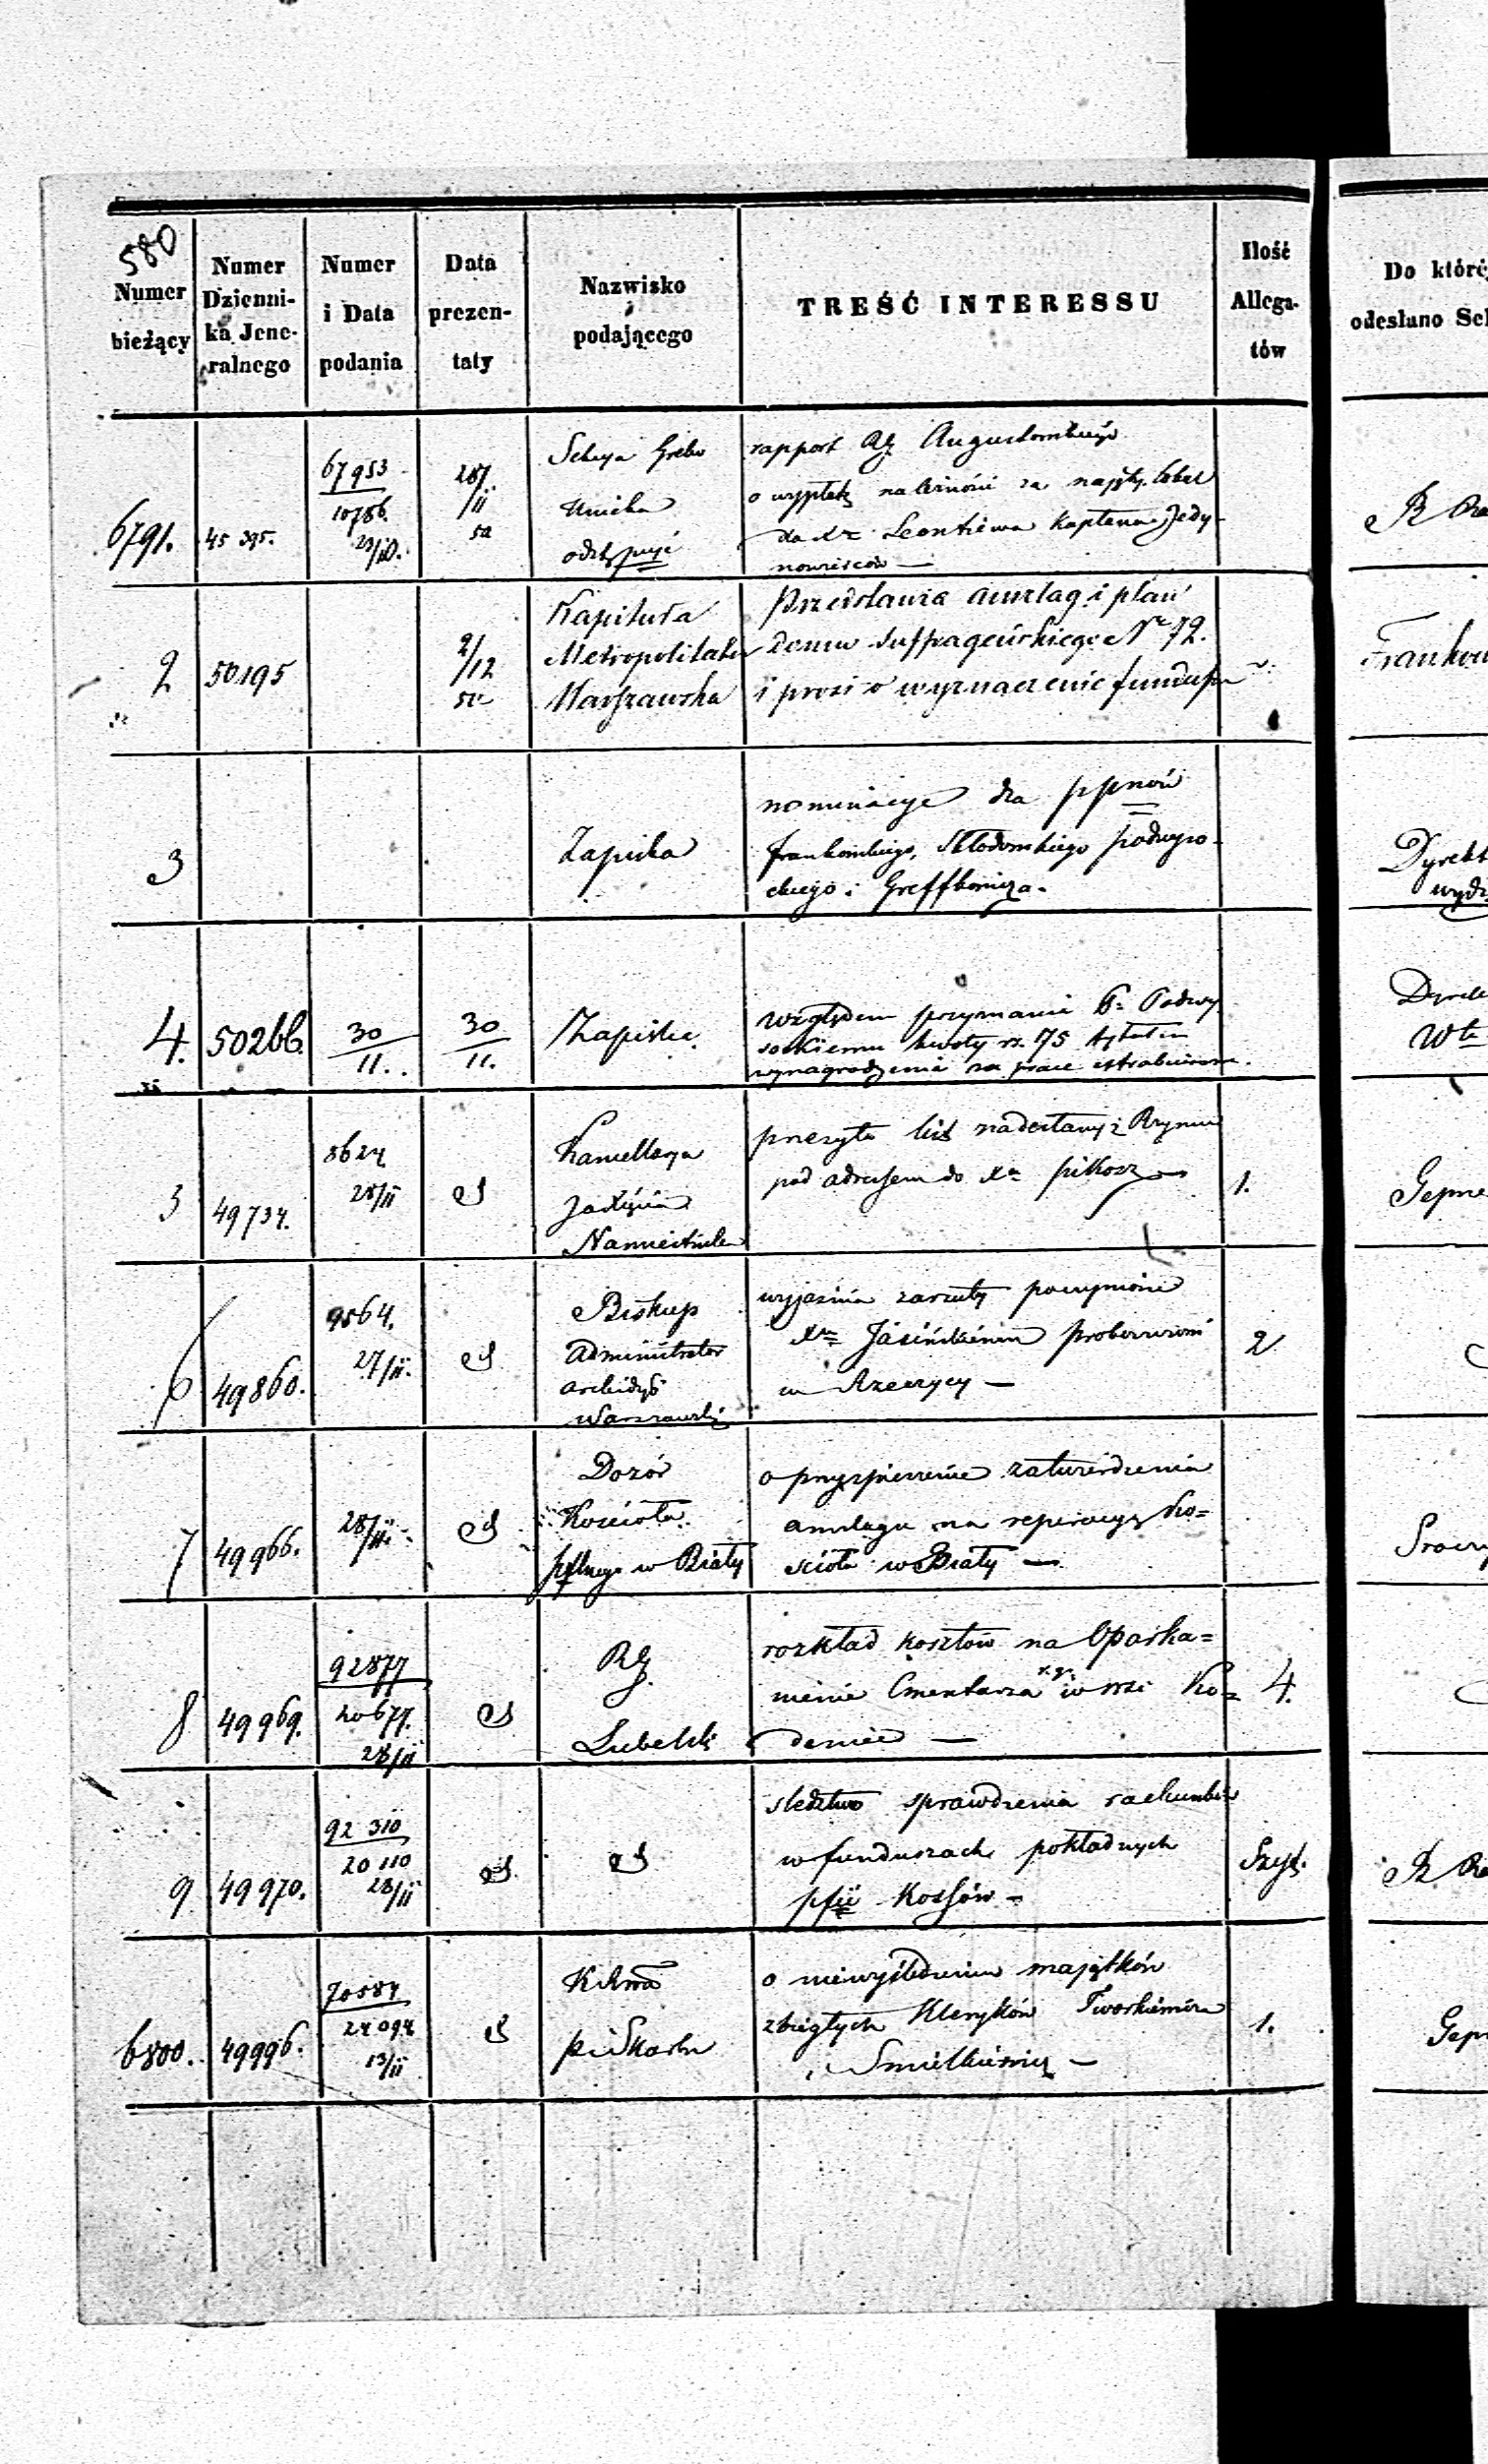 580
Numer bieżący
Numer Dzienni- ka Jene- ralnego
Numer i Data podania
Data prezen- taty
Nazwisko podającego
TREŚĆ INTERESSU
Ilość Allega- tów
Do któréj
odesłano
6791.
45 395.
67953
10786.
23/10.
28/11
52
Sekcya Greko
Unicka
odstępuje
rapport RG Augustowskiego
o wypłatę należności za najęty lokal
dla Xa Leontiewa Kapłana Jedy-
nowierców —
2
50195
2/12
52
Kapituła
Metropolitalna
Warszawska
Przedstawia anszlag i plan
domu Suffragańskiego Nr 72.
i prosi o wyznaczenie funduszu
Frankow
3
Zapiska
nominacye dla ppnów
Frankowskiego, Skłodowskiego Podwyso-
ckiego i Greffkowicza.
Dyrekt
wydz
4.
50266.
30
11.
30
11.
Zapiska.
względem przyznania P. Podwy
sockiemu kwoty rs. 75 tytułem
wynagrodzenia za prace
5
49734.
8624
28/11
Kancellarya
Xięcia
Namiestnika
przesyła list nadesłany z Rzymu
pod adressem do Xa
1.
6
49860.
9564.
27/11.
Biskup
Administrator
Archidyc
Warszawski
wyjaśnia zarzuty poczynione
Xu Jasińskiemu Proboszczowi
w Rzeczycy —
2
7
49966.
28/11.
Dozór
Kościoła
pflnego w Biały
o przyspieszenie zatwierdzenia
anszlagu na reperacyę Ko=
ścioła w Biały —
8
49969.
92877
20677.
28/11
RG.
Lubelski
rozkład kosztów na Oparka=
nienie Cmentarza r.g. w wsi Ko=
deniec —
4.
9
49970.
92 310
20 110
28/11
śledztwo sprawdzenia rachunków
w funduszach pokładnych
pfii Kossów —
Szyt.
6800.
49996.
70587
24094
13/11
Skarbu
o niewyśledzeniu majątków
zbiegłych Kleryków
i
1.